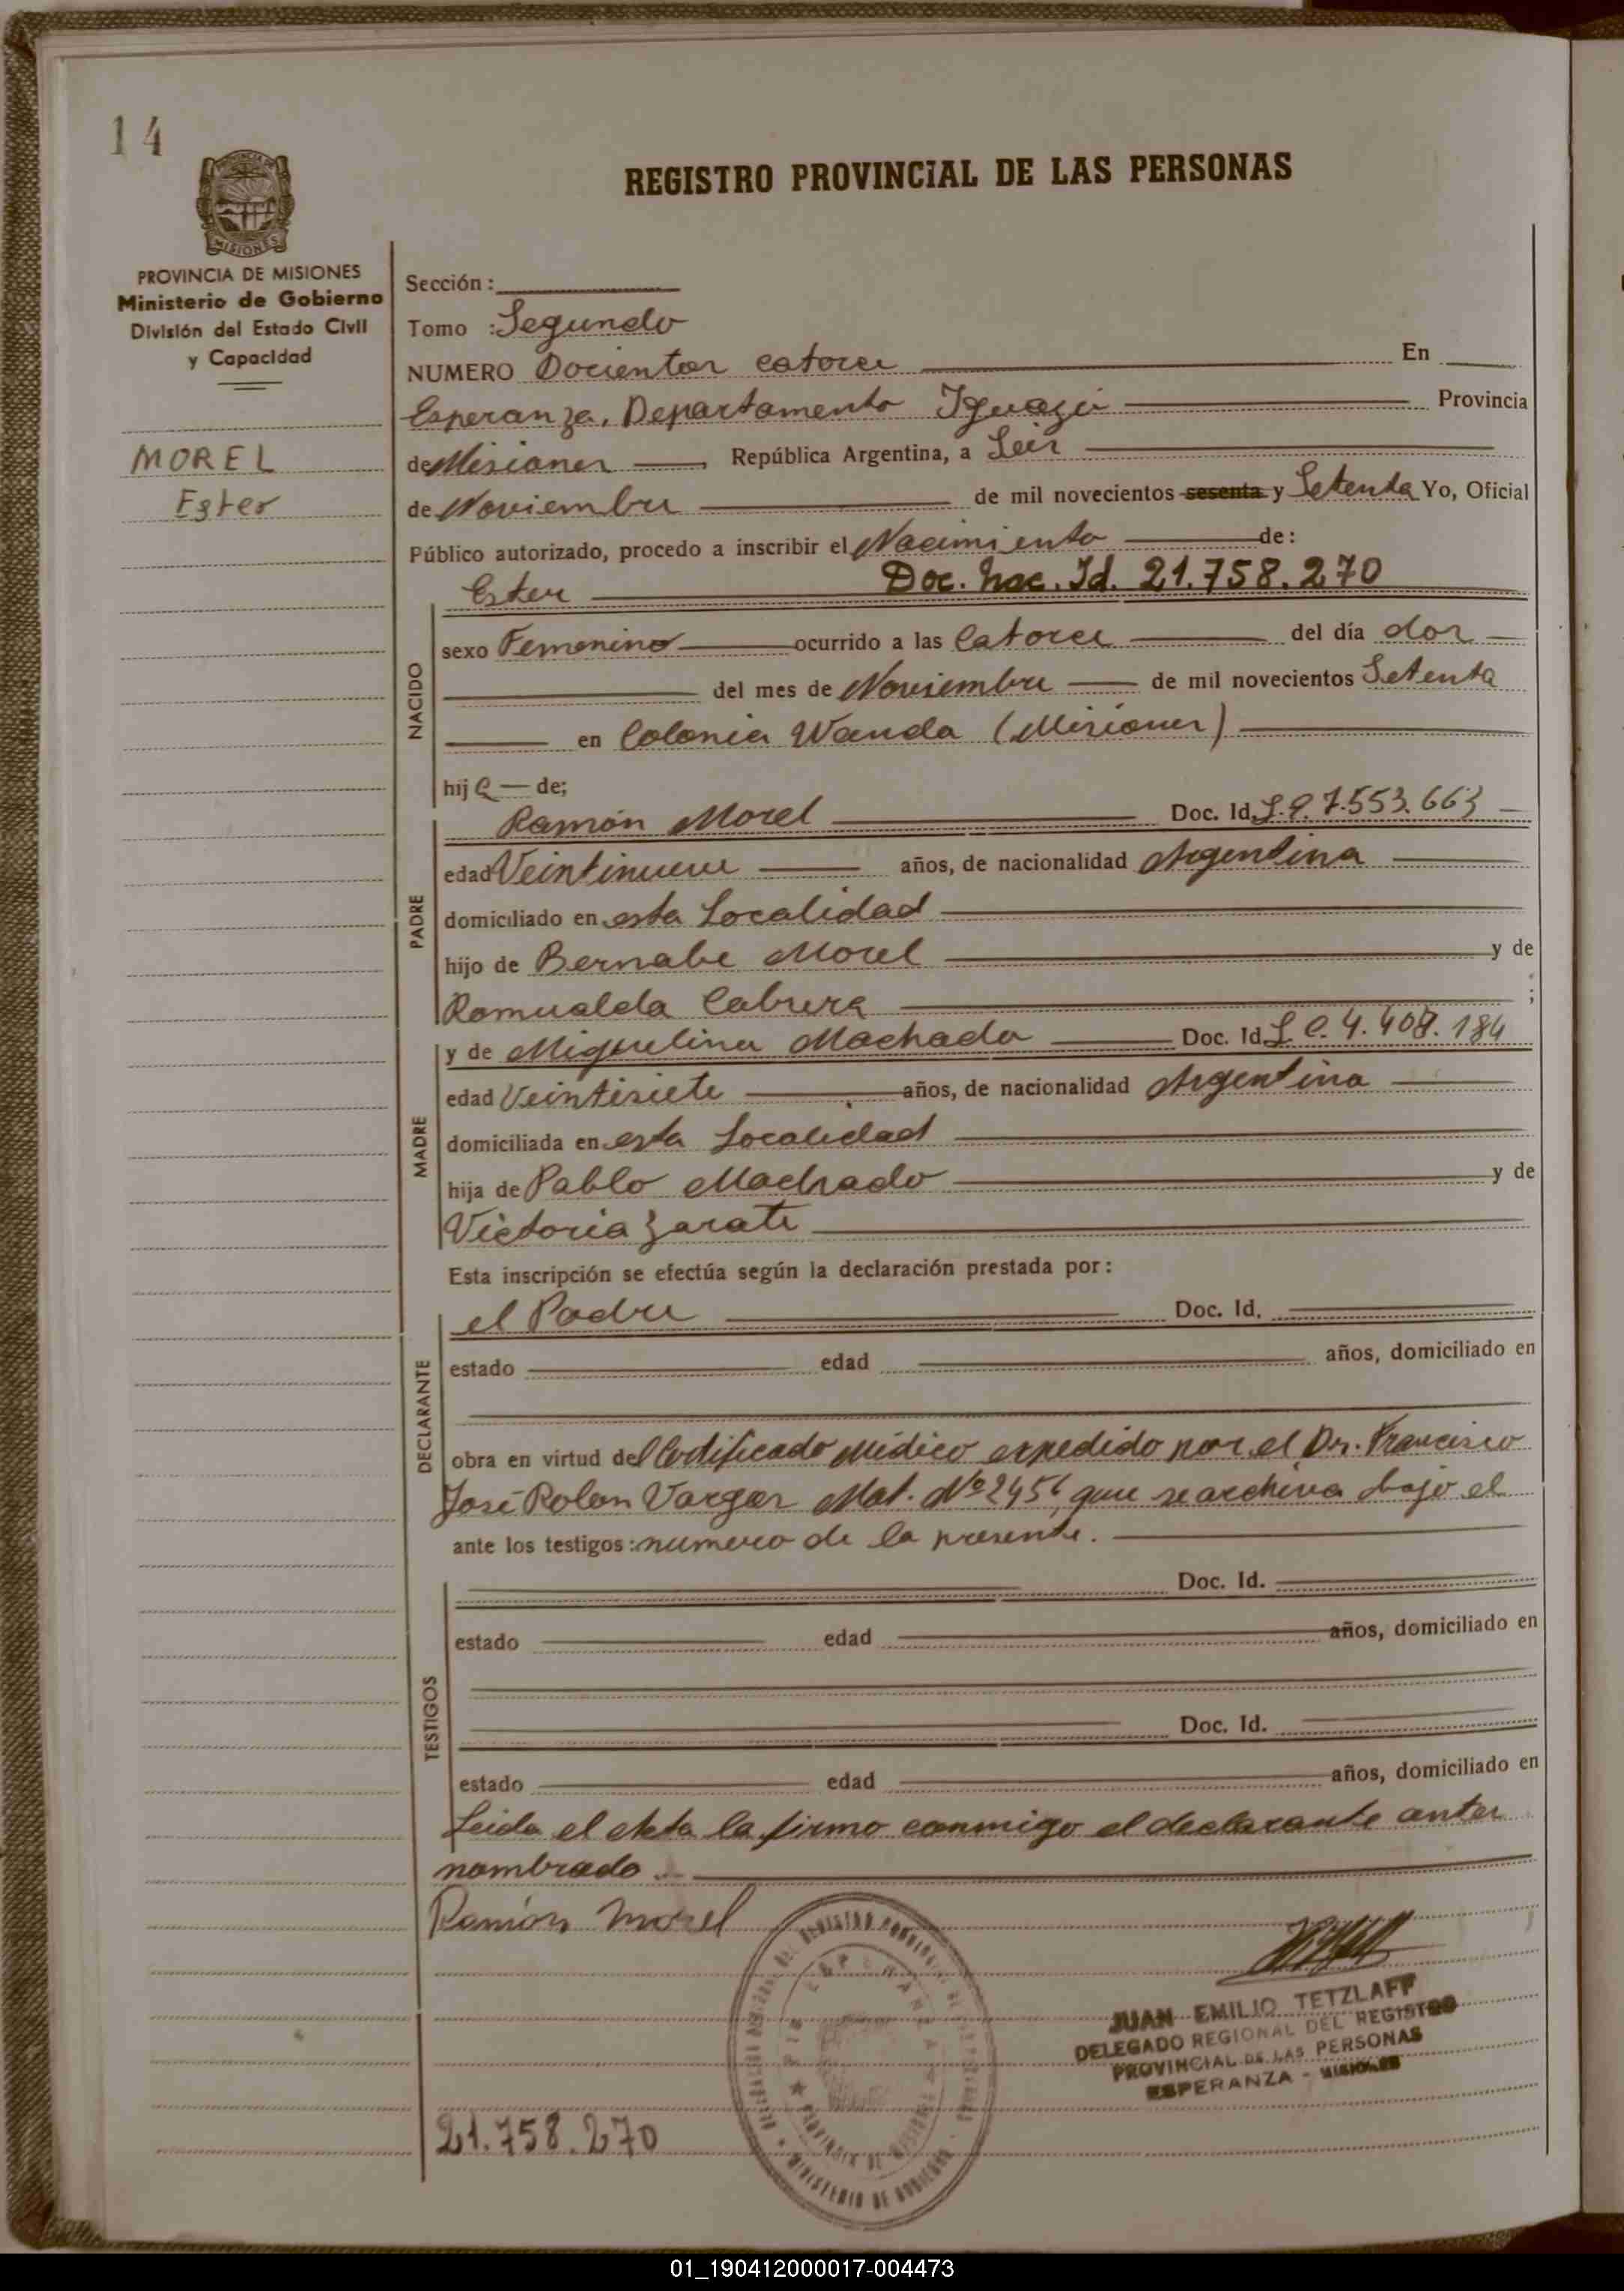 14
REGISTRO PROVINCIAL DE LAS PERSONAS
MISIONES
PROVINCIA DE MISIONES
Ministerio de Gobierno
División del Estado Civil
y Capacidad
MOREL
Ester
Sección :
Tomo : Segundo
NUMERO Docientos catorce En
Esperanza, Departamento Iguazú Provincia
de Misiones , República Argentina, a Seis
de Noviembre de mil novecientos sesenta y Setenta Yo, Oficial
Público autorizado, procedo a inscribir el Nacimiento de:
Ester Doc. Nac. Id. 21.758.270
NACIDO
sexo Femenino ocurrido a las Catorce del día dos
del mes de Noviembre de mil novecientos Setenta
en Colonia Wanda (Misiones)
hija de;
PADRE
Ramón Morel Doc. Id. 7.553.663
edad Veintinueve años, de nacionalidad Argentina
domiciliado en esta Localidad
hijo de Bernabe Morel y de
Romualda Cabrera ;
MADRE
y de Miguelina Machado Doc. Id. L.C. 184
edad Veintisiete años, de nacionalidad Argentina
domiciliada en esta Localidad
hija de Pablo Machado y de
Victoria Zarate
Esta inscripción se efectúa según la declaración prestada por:
DECLARANTE
el Padre Doc. Id.
estado edad años, domiciliado en
obra en virtud del Certificado Médico expedido por el Dr. Francisco
José Rolon Vargas Mat. Nº 2456, que se archiva bajo el
ante los testigos: numero de la presente.
TESTIGOS
Doc. Id.
estado edad años, domiciliado en
Doc. Id.
estado edad años, domiciliado en
Leida el Acta la firmo conmigo el declarante antes
nombrado.
Ramón Morel
ESPERANZA
PROVINCIA DE MISIONES
MINISTERIO DE GOBIERNO
JUAN EMILIO TETZLAFF
DELEGADO REGIONAL DEL REGISTRO
PROVINCIAL DE LAS PERSONAS
ESPERANZA - MISIONES
21.758.270
01_190412000017-004473